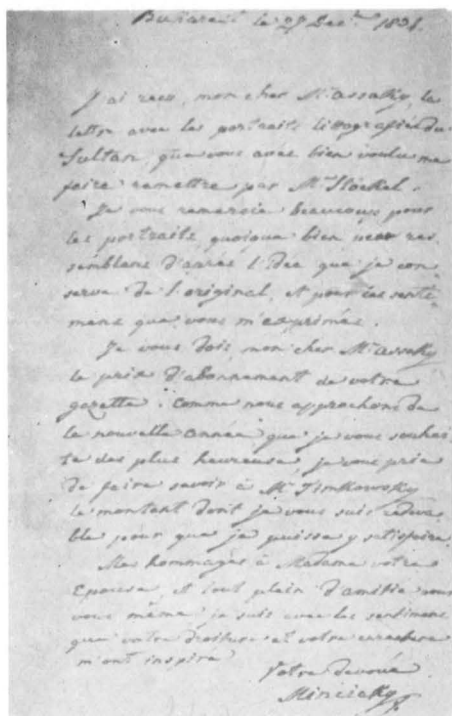 Bucarest le 29 Dec. 1831.
J'ai reçu, mon cher Mr. Assaky, la
lettre avec les portraits litografiés du
Sultan, que vous avés bien voulu me
faire remettre par Mr. Stöckel.
Je vous remercie beaucoup pour
les portraits, quoique bien peu res
semblans d'après l'idée que je con-
serve de l'original, et pour les senti-
mens que vous m'exprimés.
Je vous dois, mon cher Mr. Assaky
le prix d'abonnement de votre
gazette. Comme nous approchons de
la nouvelle année que je vous souhai-
te des plus heureuse, je vous prie
de faire savoir à Mr. Timkowsky
le montant dont je vous suis redeva
ble pour que je puisse y satisfaire.
Mes hommages à Madame votre
Epouse, et tout plein d'amitié pour
vous même, je suis avec les sentimens
que votre droiture et votre caractère
m'ont inspiré
Votre devoué
Minciaky